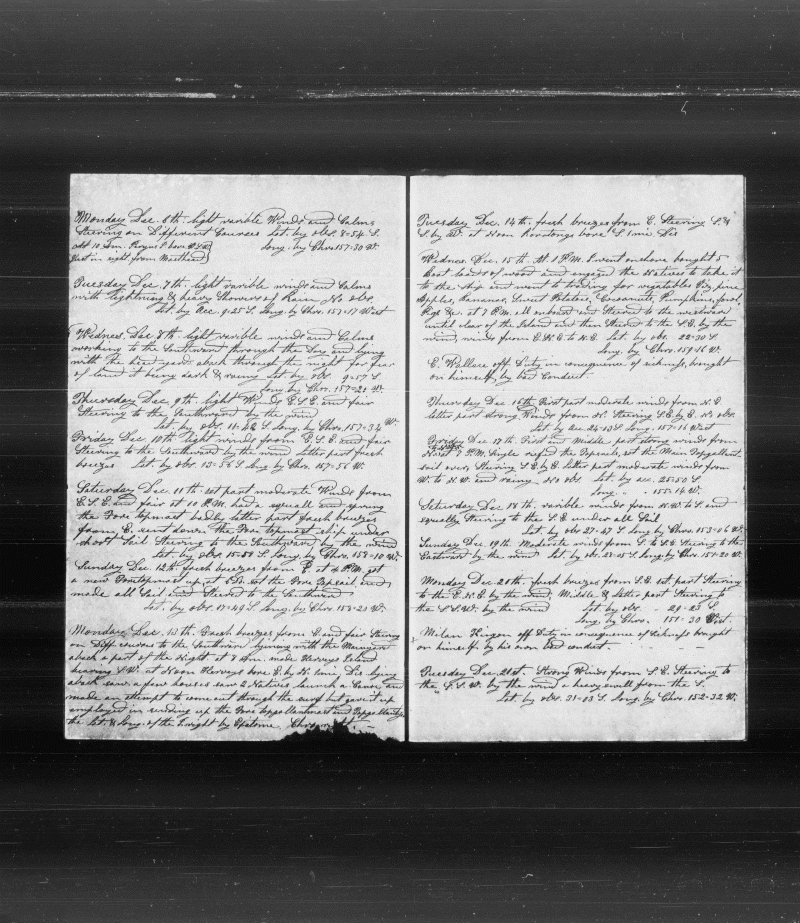 Monday Dec. 6th. light varible Winds and Calms
Steering on Different Courses Lat. by obs. 8=54 S.
At 10 Am. Long. by Chro. 157=30 W.
Just in sight from Masthead
Tuesday Dec. 7th. light varible winds and Calms
with lightning & heavy Showers of Rain, No obs.
Lat. by acc. 9=25 S. Long. by Chro. 157=17 West
Wednes. Dec. 8th. light varible winds and Calms
working to the Southward through the Day and lying
with the head yards aback through the night for fear
of land it being dark & rainy Lat. by obs 9=57 S.
Long by Chro. 157=21 W.
Thursday Dec. 9th. light Winds E.S.E. and fair
Steering to the Southward by the wind
Lat. by obs. S. Long. by Chro. 157=34 W.
Friday Dec. 10th light winds from E.S.E. and fair
Steering to the Southward by the wind latter part fresh
breezes Lat. by obs 13=56 S. Long by Chro. 157=56 W.
Saturday Dec. 11th. 1st part moderate Winds from
E.S.E. and fair at 10 P.M. had a squall and sprung
the Fore topmast badly latter part fresh breezes
from E. sent down the Fore topmast ship under
short Sail Steering to the Southward by the wind
Lat. by obs 15=59 S. Long. by Chro. 158=10 W.
Sunday Dec. 12th. fresh breezes from E. at 4 P.M. got
a new Foretopmast up, at set the Fore Topsail and
made all Sail and Steered to the Southward
Lat. by obs. 17=49 S. Long. by Chro 158=21 W.
Monday Dec. 13th. Fresh breezes from E. and fair Steering
on Diff. courses to the Southward lying with the Mainyard
aback a part of the Night, at 8 Am. made Herveys Island
bearing S.W. at Noon Herveys bore E. by N. 1 mi. Dis. lying
aback saw a few houses saw 2 Natives launch a Canoe and
made an attempt to come out through the surf but gave it up
employed in sending up the Fore Topgallantmast and Topgallant yd.
the Lat & Long. of the Knight by Epitome
Tuesday Dec. 14th. fresh breezes from E. Steering S.W.
S. by W. at Noon Rarotonga bore S. 1 mi. Dis
Wednes. Dec. 15th. At 1 P.M. I went on shore bought 5
Boat loads of wood and engaged the Natives to take it
to the ship and went to trading for vegetables Viz, pine
Apples, Bananas, Sweet Potatoes, Cocoanuts, Pumpkins, fowl,
Pigs &c. at 7 P.M. all onboard and Steered to the westward
until clear of the Island and then Steered to the S.E. by the
wind, winds from E.N.E. to N.E. Lat. by obs. 22=30 S.
Long. by Chro. 159=16 W.
E. Wallace off Duty in consequence of sickness, brought
on himself by bad Conduct
Thursday Dec 16th First part moderate winds from N.E
latter part Strong Winds from N. Steering S.E. by E. No obs.
Lat by acc. 24=13 S. Long. 157=16 West
Friday Dec 17th First and Middle part strong winds from
7 P.M. Single reefed the Topsails, set the Main Topgallant
sail over, Steering S.E. by E. latter part moderate winds from
W. to N.W. and rainy. No obs Lat. by acc. 25=50 S.
Long. " . 155=14 W.
Saturday Dec 18th. varible winds from N.W. to S. and
squally Steering to the S.E. under all Sail
Lat. by obs 27=47 S. Long by Chro. 153=06 W.
Sunday Dec. 19th. Moderate winds from S. to S.E. Steering to the
Eastward by the wind Lat. by obs. 28=05 S. Long by Chro. 151=20 W.
Monday Dec 20th. fresh breezes from S.E. 1st part Steering
to the E.N.E. by the wind, Middle & latter part Steering to
the S.S.W. by the wind Lat by obs. - 29=23 S.
Long. by Chro. . 151=30 West.
Milan off Duty in consequence of sickness brought
on himself by his own bad conduct. - - -
Tuesday Dec. 21st. Strong Winds from S.E. Steering to
the S.S.W. by the wind a heavy swell from the S.
Lat. by obs. 31=03 S. Long. by Chro. 152=32 W.